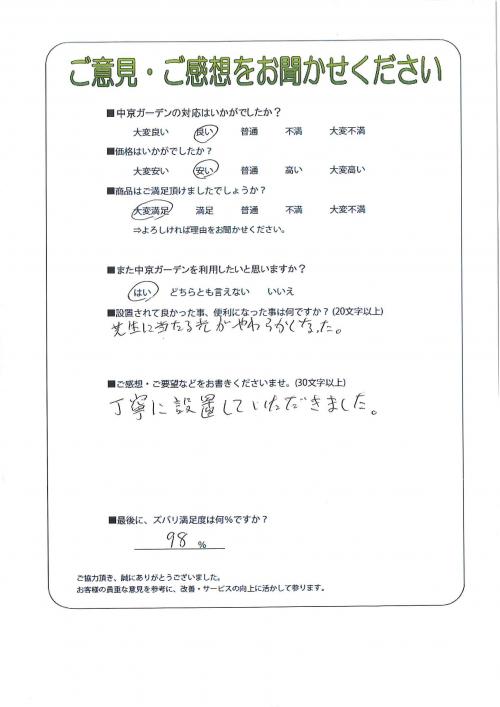 ご意見・ご感想をお聞かせください
■中京ガーデンの対応はいかがでしたか？
大変良い 良い 普通 不満 大変不満
■価格はいかがでしたか？
大変安い 安い 普通 高い 大変高い
■商品はご満足頂けましたでしょうか？
大変満足 満足 普通 不満 大変不満
⇒よろしければ理由をお聞かせください。
■また中京ガーデンを利用したいと思いますか？
はい どちらとも言えない いいえ
■設置されて良かった事、便利になった事は何ですか？(20文字以上)
先生に当たる光がやわらかくなった。
■ご感想・ご要望などをお書きくださいませ。(30文字以上)
丁寧に設置していただきました。
■最後に、ズバリ満足度は何％ですか？
98 %
ご協力頂き、誠にありがとうございました。
お客様の貴重な意見を参考に、改善・サービスの向上に活かして参ります。